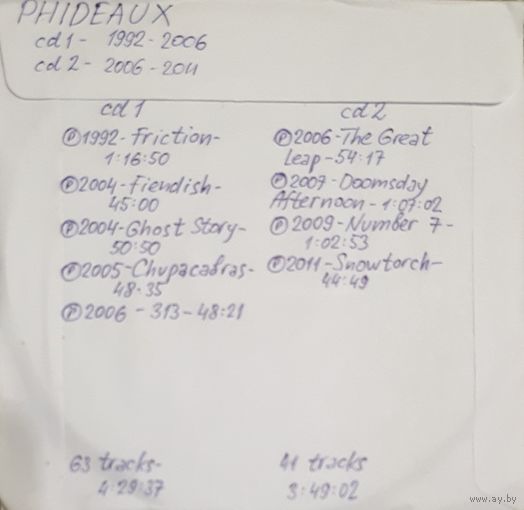 PHIDEAUX
cd 1 - 1992-2006
cd 2 - 2006-2011
cd 1
Ⓟ1992-Friction-
1:16:50
Ⓟ2004-Fiendish-
45:00
Ⓟ2004-Ghost Story-
50:50
Ⓟ2005-Chupacabras-
48:35
Ⓟ2006-313-48:21
63 tracks-
4:29:37
cd 2
Ⓟ2006-The Great
Leap-54:17
Ⓟ2007-Doomsday
Afternoon-1:07:02
Ⓟ2009-Number 7-
1:02:53
Ⓟ2011-Snowtorch-
44:49
41 tracks
3:49:02
www.ay.by